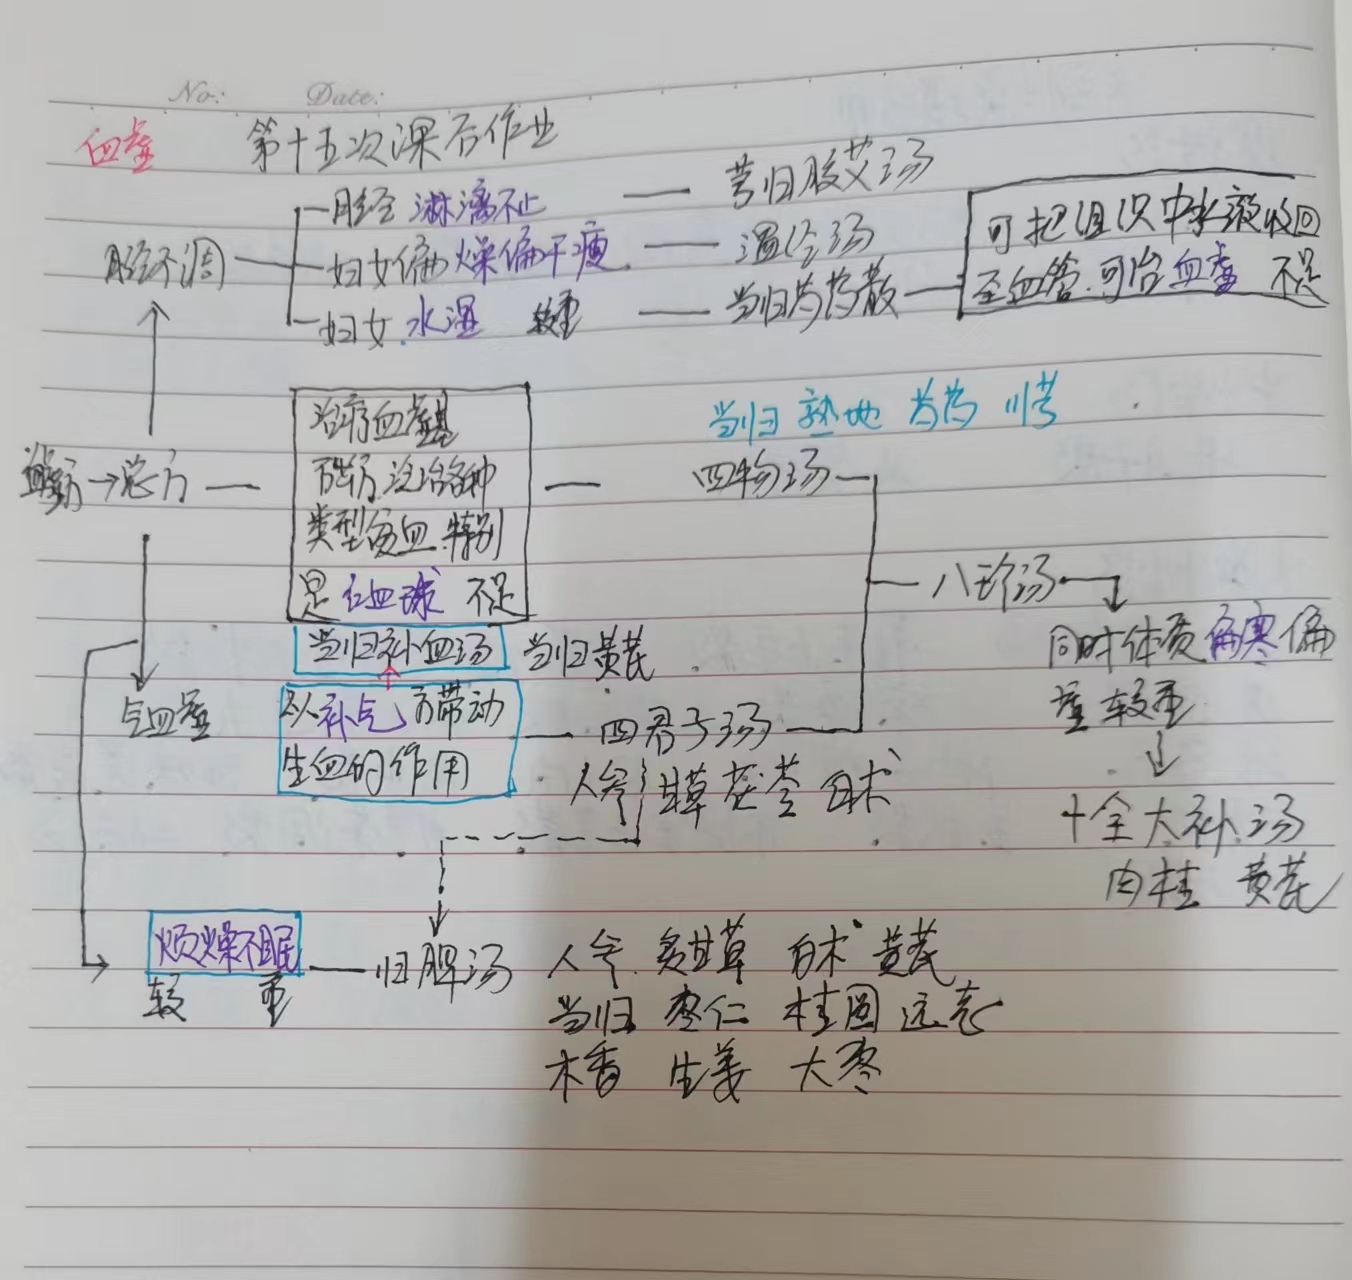 No: Date:
血虚 第十五次课后作业
月经淋漓不止 — 芎归胶艾汤
月经不调
妇女偏燥偏干瘦 — 温经汤
妇女水湿 较重 — 当归芍药散
可把组织中水液收回
至血管.可治血虚 不足
治疗血虚基
础方.泛治各种
类型贫血.特别
是红血球 不足
当归 熟地 芍药 川芎
→总方
四物汤
八珍汤
当归补血汤 当归黄芪
气血虚
以补气而带动
生血的作用
四君子汤
人参 甘草 茯苓 白术
同时体质偏寒偏
虚较重
十全大补汤
肉桂 黄芪
烦燥不眠
较 重
归脾汤
人参 炙甘草 白术 黄芪
当归 枣仁 桂圆 远志
木香 生姜 大枣